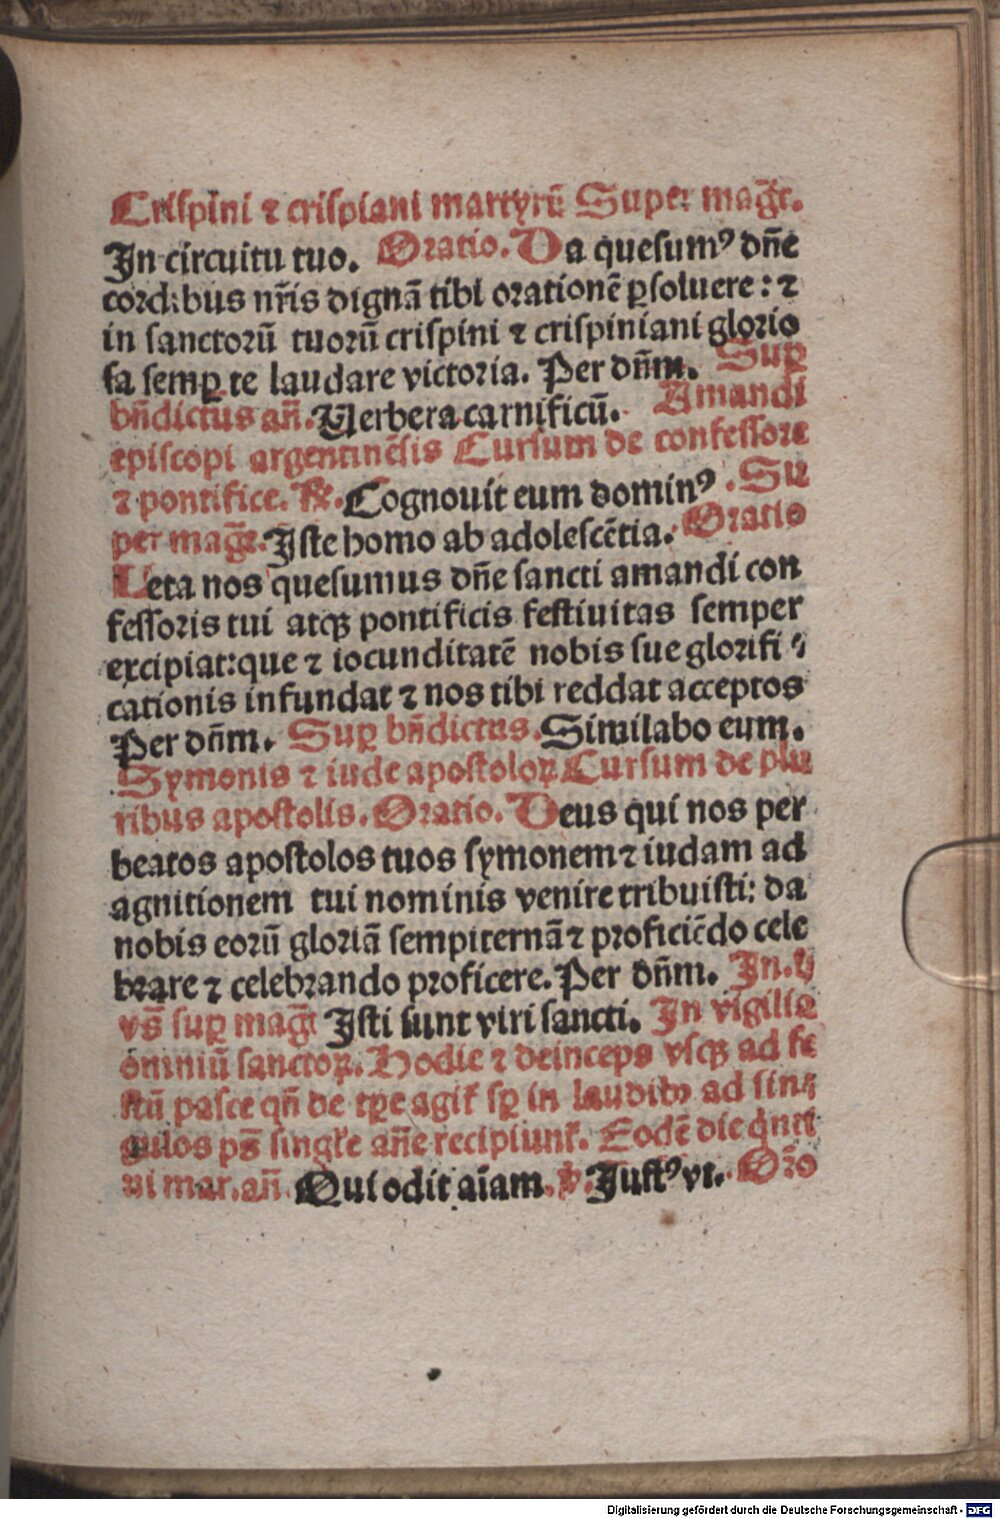 Crispini ⁊ crispiani martyrū Super mag̃t.
In circuitu tuo. Oratio. Da quesumꝰ dñe
cordibus nr̃is dignã tibi orationẽ ꝑsoluere: ⁊
in sanctorũ tuorũ crispini ⁊ crispiniani glorio
sa semꝑ te laudare victoria. Per dñm. Suꝑ
bñdictus añ. Verbera carnificũ. Amandi
episcopi argentinẽsis Cursum de confessore
⁊ pontifice. ℟. Cognouit eum dominꝰ. Su
per mag̃t. Iste homo ab adolescẽtia. Oratio
Leta nos quesumus dñe sancti amandi con
fessoris tui atqꝫ pontificis festiuitas semper
excipiat: que ⁊ iocunditatẽ nobis sue glorifi⸗
cationis infundat ⁊ nos tibi reddat acceptos
Per dñm. Suꝑ bñdictus. Similabo eum.
Symonis ⁊ iude apostoloꝝ Cursum de plu
ribus apostolis. Oratio. Deus qui nos per
beatos apostolos tuos symonem ⁊ iudam ad
agnitionem tui nominis venire tribuisti: da
nobis eorũ gloriã sempiternã ⁊ proficiẽdo cele
brare ⁊ celebrando proficere. Per dñm. In. ij
vs̃ suꝑ mag̃t Isti sunt viri sancti. In vigilia
omniũ sanctoꝝ. Hodie ⁊ deinceps vsqꝫ ad fe
stũ pasce qñ de tꝑe agit̃ sꝑ in laudibꝫ ad sin⸗
gulos ps̃ singl̃e añe recipiunt̃. Eodẽ die q̃nti
ni mar. añ. Qui odit aĩam. ℣. Iustꝰ vt. Or̃o